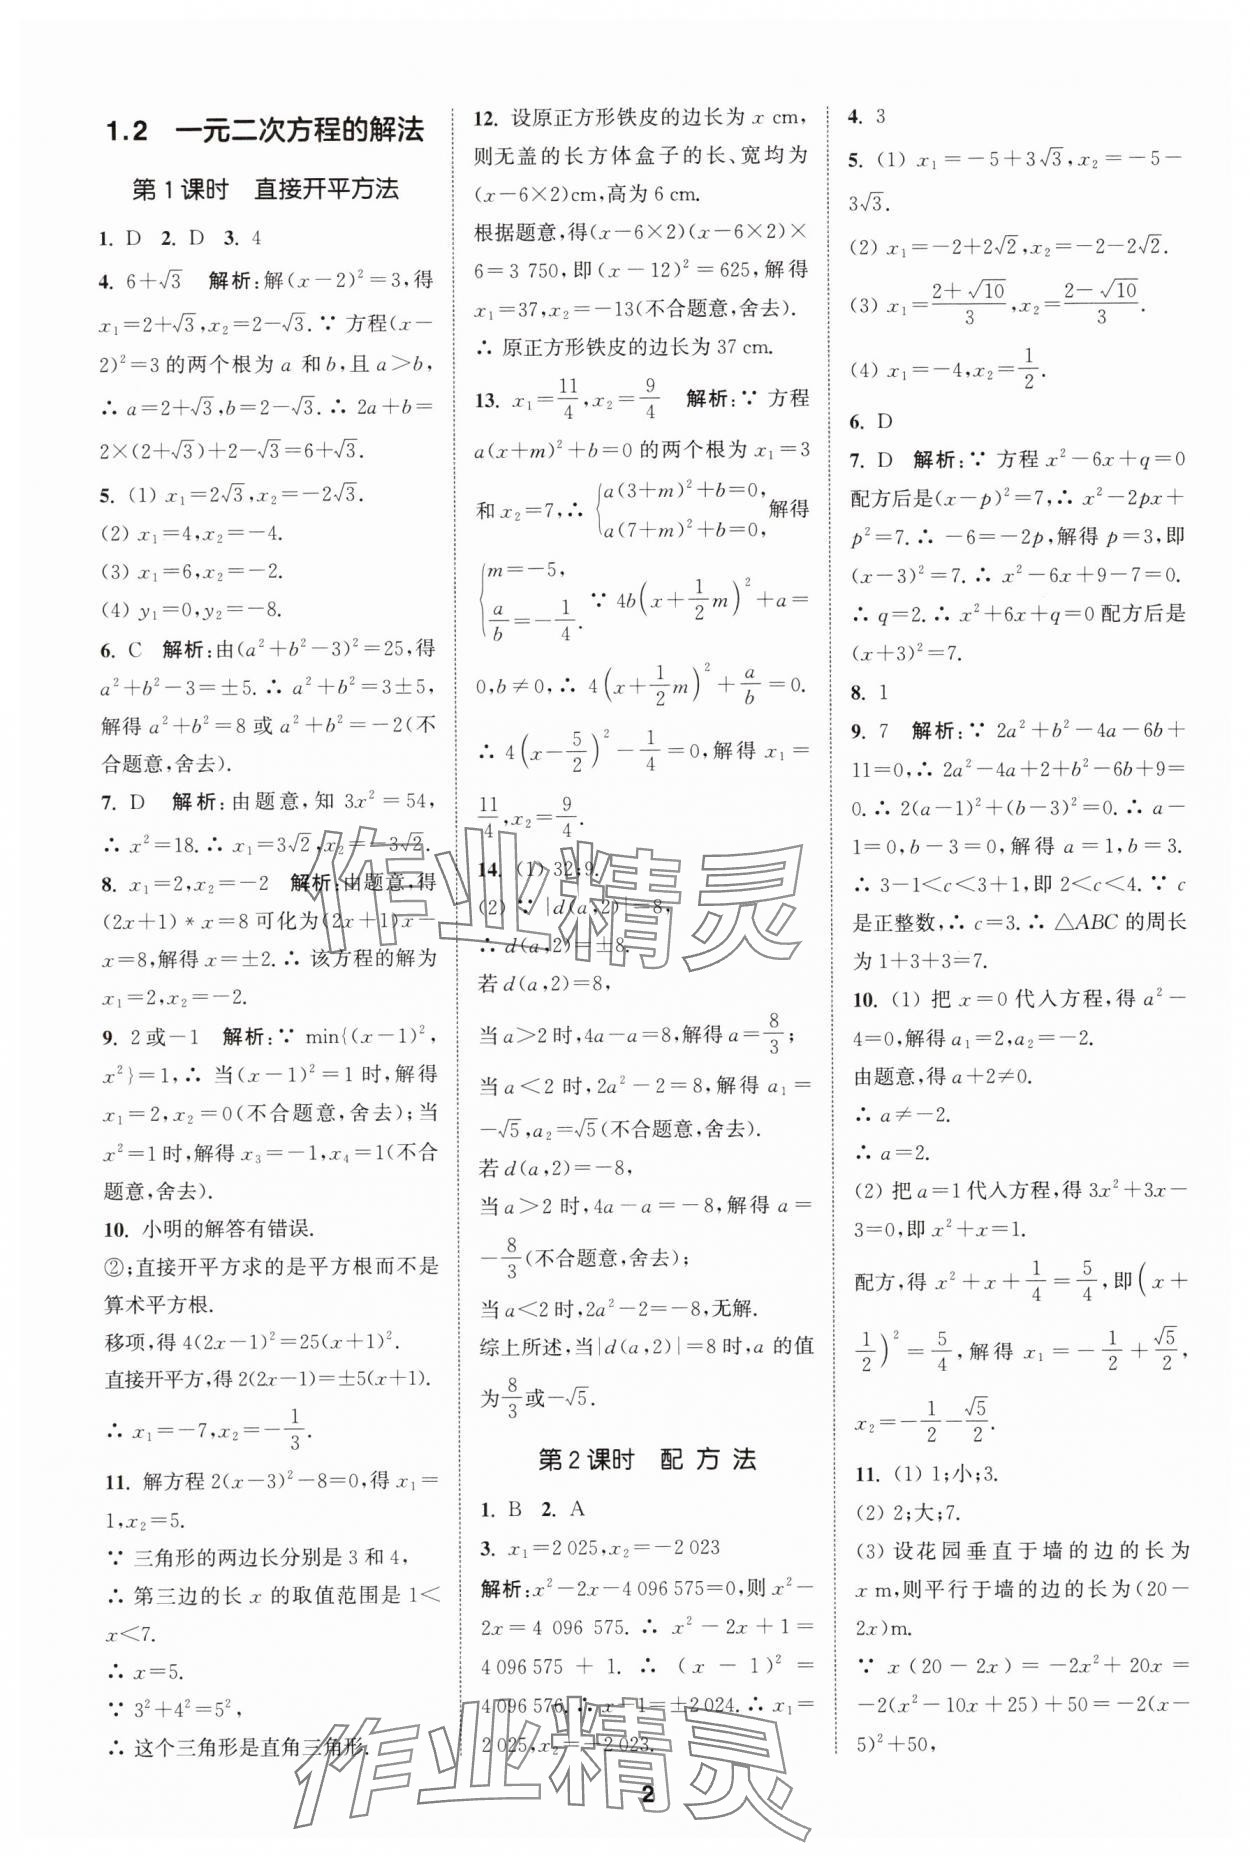 1.2 一元二次方程的解法
第1课时 直接开平方法
1. D 2. D 3. 4
4. 6+√3 解析:解(x-2)²=3,得
x₁=2+√3,x₂=2-√3.∵ 方程(x-
2)²=3的两个根为 a 和 b,且 a>b,
∴ a=2+√3,b=2-√3.∴ 2a+b=
2×(2+√3)+2-√3=6+√3.
5. (1) x₁=2√3,x₂=-2√3.
(2) x₁=4,x₂=-4.
(3) x₁=6,x₂=-2.
(4) y₁=0,y₂=-8.
6. C 解析:由(a²+b²-3)²=25,得
a²+b²-3=±5.∴ a²+b²=3±5,
解得 a²+b²=8 或 a²+b²=-2(不
合题意,舍去).
7. D 解析:由题意,知 3x²=54,
∴ x²=18.∴ x₁=3√2,x₂=-3√2.
8. x₁=2,x₂=-2 解析:由题意,得
(2x+1)*x=8可化为(2x+1)x-
x=8,解得 x=±2.∴ 该方程的解为
x₁=2,x₂=-2.
9. 2或-1 解析:∵ min{(x-1)²,
x²}=1,∴ 当(x-1)²=1时,解得
x₁=2,x₂=0(不合题意,舍去);当
x²=1时,解得 x₃=-1,x₄=1(不合
题意,舍去).
10. 小明的解答有错误.
②;直接开平方求的是平方根而不是
算术平方根.
移项,得 4(2x-1)²=25(x+1)².
直接开平方,得 2(2x-1)=±5(x+1).
∴ x₁=-7,x₂=-1/3.
11. 解方程 2(x-3)²-8=0,得 x₁=
1,x₂=5.
∵ 三角形的两边长分别是 3 和 4,
∴ 第三边的长 x 的取值范围是 1<
x<7.
∴ x=5.
∵ 3²+4²=5²,
∴ 这个三角形是直角三角形.
12. 设原正方形铁皮的边长为 x cm,
则无盖的长方体盒子的长、宽均为
(x-6×2)cm,高为 6 cm.
根据题意,得(x-6×2)(x-6×2)×
6=3 750,即(x-12)²=625,解得
x₁=37,x₂=-13(不合题意,舍去).
∴ 原正方形铁皮的边长为 37 cm.
13. x₁=11/4,x₂=9/4 解析:∵ 方程
a(x+m)²+b=0 的两个根为 x₁=3
和 x₂=7,∴ {a(3+m)²+b=0, a(7+m)²+b=0, 解得
{m=-5, a/b=-1/4. ∵ 4b(x+1/2m)²+a=
0,b≠0,∴ 4(x+1/2m)²+a/b=0.
∴ 4(x-5/2)²-1/4=0,解得 x₁=
11/4,x₂=9/4.
14. (1) 32;9.
(2) ∵ |d(a,2)|=8,
∴ d(a,2)=±8.
若 d(a,2)=8,
当 a>2 时,4a-a=8,解得 a=8/3;
当 a<2 时,2a²-2=8,解得 a₁=
-√5,a₂=√5(不合题意,舍去).
若 d(a,2)=-8,
当 a>2 时,4a-a=-8,解得 a=
-8/3(不合题意,舍去);
当 a<2时,2a²-2=-8,无解.
综上所述,当|d(a,2)|=8时,a 的值
为8/3或-√5.
第2课时 配方法
1. B 2. A
3. x₁=2 025,x₂=-2 023
解析:x²-2x-4 096 575=0,则 x²-
2x=4 096 575.∴ x²-2x+1=
4 096 575+1.∴ (x-1)²=
4 096 576.∴ x-1=±2 024.∴ x₁=
2 025,x₂=-2 023.
4. 3
5. (1) x₁=-5+3√3,x₂=-5-
3√3.
(2) x₁=-2+2√2,x₂=-2-2√2.
(3) x₁=(2+√10)/3,x₂=(2-√10)/3.
(4) x₁=-4,x₂=1/2.
6. D
7. D 解析:∵ 方程 x²-6x+q=0
配方后是(x-p)²=7,∴ x²-2px+
p²=7.∴ -6=-2p,解得 p=3,即
(x-3)²=7.∴ x²-6x+9-7=0.
∴ q=2.∴ x²+6x+q=0配方后是
(x+3)²=7.
8. 1
9. 7 解析:∵ 2a²+b²-4a-6b+
11=0,∴ 2a²-4a+2+b²-6b+9=
0.∴ 2(a-1)²+(b-3)²=0.∴ a-
1=0,b-3=0,解得 a=1,b=3.
∴ 3-1<c<3+1,即 2<c<4.∵ c
是正整数,∴ c=3.∴ △ABC 的周长
为 1+3+3=7.
10. (1) 把 x=0 代入方程,得 a²-
4=0,解得 a₁=2,a₂=-2.
由题意,得 a+2≠0.
∴ a≠-2.
∴ a=2.
(2) 把 a=1代入方程,得 3x²+3x-
3=0,即 x²+x=1.
配方,得 x²+x+1/4=5/4,即(x+
1/2)²=5/4,解得 x₁=-1/2+√5/2,
x₂=-1/2-√5/2.
11. (1) 1;小;3.
(2) 2;大;7.
(3) 设花园垂直于墙的边的长为
x m,则平行于墙的边的长为(20-
2x)m.
∵ x(20-2x)=-2x²+20x=
-2(x²-10x+25)+50=-2(x-
5)²+50,
作业精灵
作业精灵
2